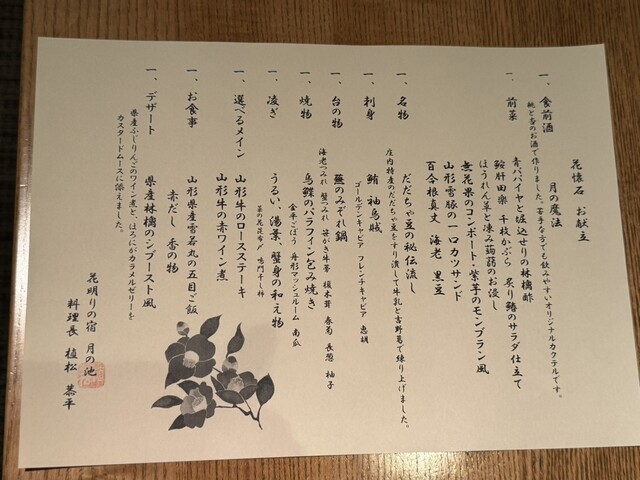 花懐石 お献立
一、食前酒 月の魔法
桃と杏のお酒で作りました。苦手な方でも飲みやすいオリジナルカクテルです。
一、前菜 青パパイヤと堀込せりの林檎酢
鮟肝田楽 千枚かぶら 炙り鰆のサラダ仕立て
ほうれん草と凍み蒟蒻のお浸し
無花果のコンポート・紫芋のモンブラン風
山形雪豚の一口カツサンド
百合根真丈 海老 黒豆
一、名物 だだちゃ豆の秘伝流し
庄内特産のだだちゃ豆をすり潰して牛乳と吉野葛で練り上げました。
一、刺身 鮪 袖烏賊
ゴールデンキャビア フレンチキャビア 恵胡
一、台の物 蕪のみぞれ鍋
海老つみれ 蟹つみれ 笹がき牛蒡 榎木茸 春菊 長葱 柚子
一、焼物 烏鰈のパラフィン包み焼き
金平ごぼう 舟形マッシュルーム 南瓜
一、凌ぎ うるい、湯葉、蟹身の和え物
菜の花昆布〆 鳴門干し柿
一、選べるメイン 山形牛のロースステーキ
山形牛の赤ワイン煮
一、お食事 山形県産雪若丸の五目ご飯
赤だし 香の物
一、デザート 県産林檎のシブースト風
県産ふじりんごのワイン煮と、ほろにがカラメルゼリーを
カスタードムースに添えました。
花明りの宿 月の池
料理長 植松 恭平